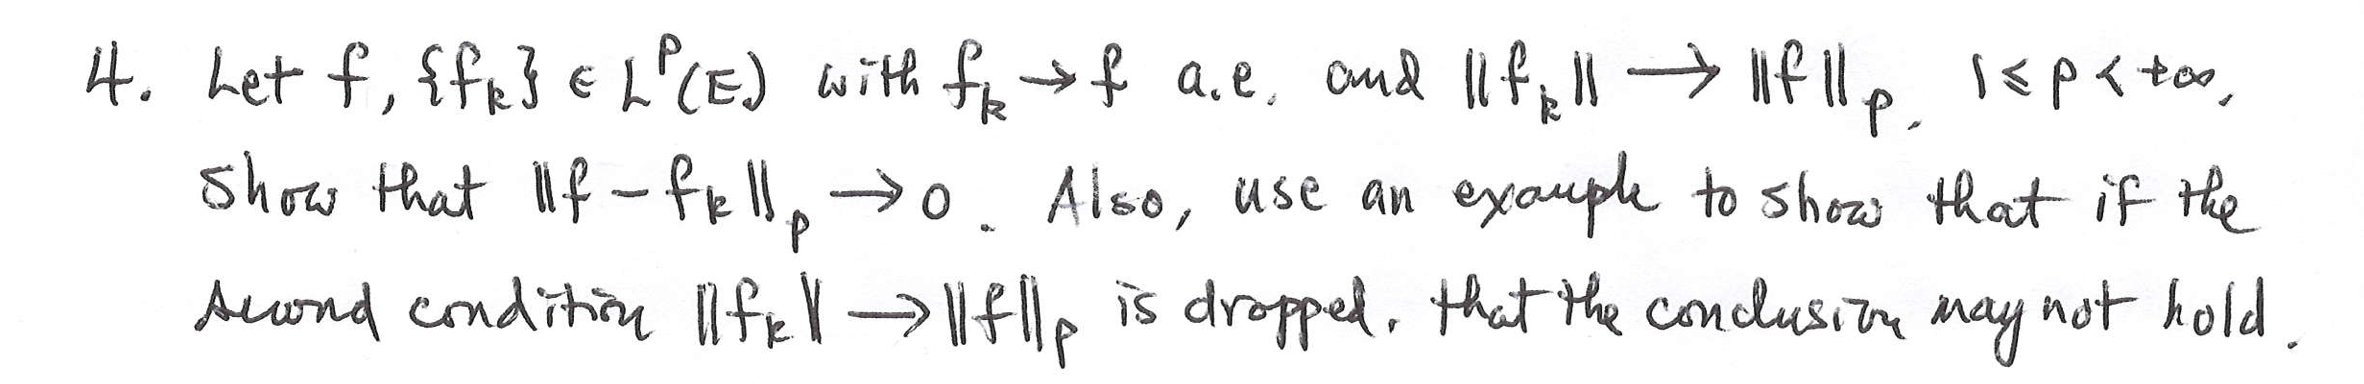 4. Let f, {fₖ} ∈ Lᵖ(E) with fₖ → f a.e. and ‖fₖ‖ → ‖f‖ₚ. 1 ≤ p < +∞,
show that ‖f − fₖ‖ₚ → 0. Also, use an example to show that if the
second condition ‖fₖ‖ → ‖f‖ₚ is dropped, that the conclusion may not hold.